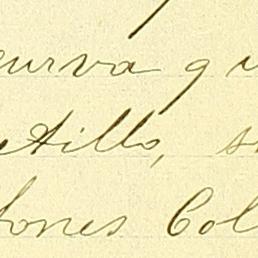 curva q
tillo, s
ones Col